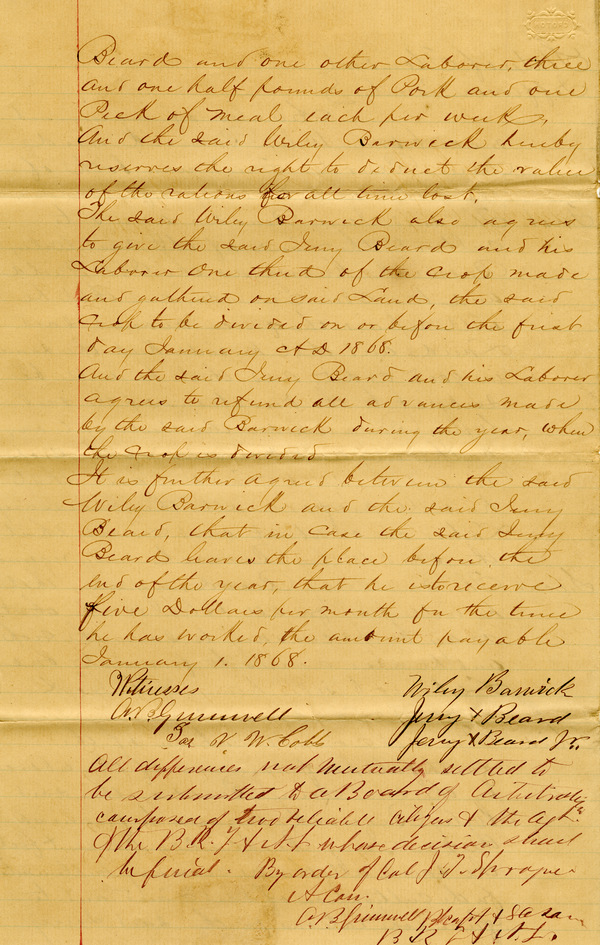 Beard and one other Laborer, three
and one half pounds of Pork and one
Peck of meal each per week,
And the said Wiley Barwick hereby
reserves the right to deduct the value
of the rations for all time lost.
The said Wiley Barwick also agrees
to give the said Jerry Beard and his
Laborer One third of the crop made
and gathered on said Land, the said
crop to be divided on or before the first
day January AD 1868.
And the said Jerry Beard and his Laborer
agrees to refund all advances made
by the said Barwick during the year, when
the crop is divided
It is further agreed between the said
Wiley Barwick and the said Jerry
Beard, that in case the said Jerry
Beard leaves the place before the
end of the year, that he is to receive
five Dollars per month for the time
he has worked, the amount payable
January 1. 1868.
Witnesses Wiley Barwick
A.B. Grunwell Jerry X Beard
W. Cobb Jerry X Beard Jr.
All differences not mutually settled to
be submitted to a Board of Arbitration
composed of two reliable citizens & the Agt.
of the B. R. F & A. L whose decision shall
be final. By order of Col J. T. Sprague
A Com.
A.B. Grunwell &
B R F & A. L.